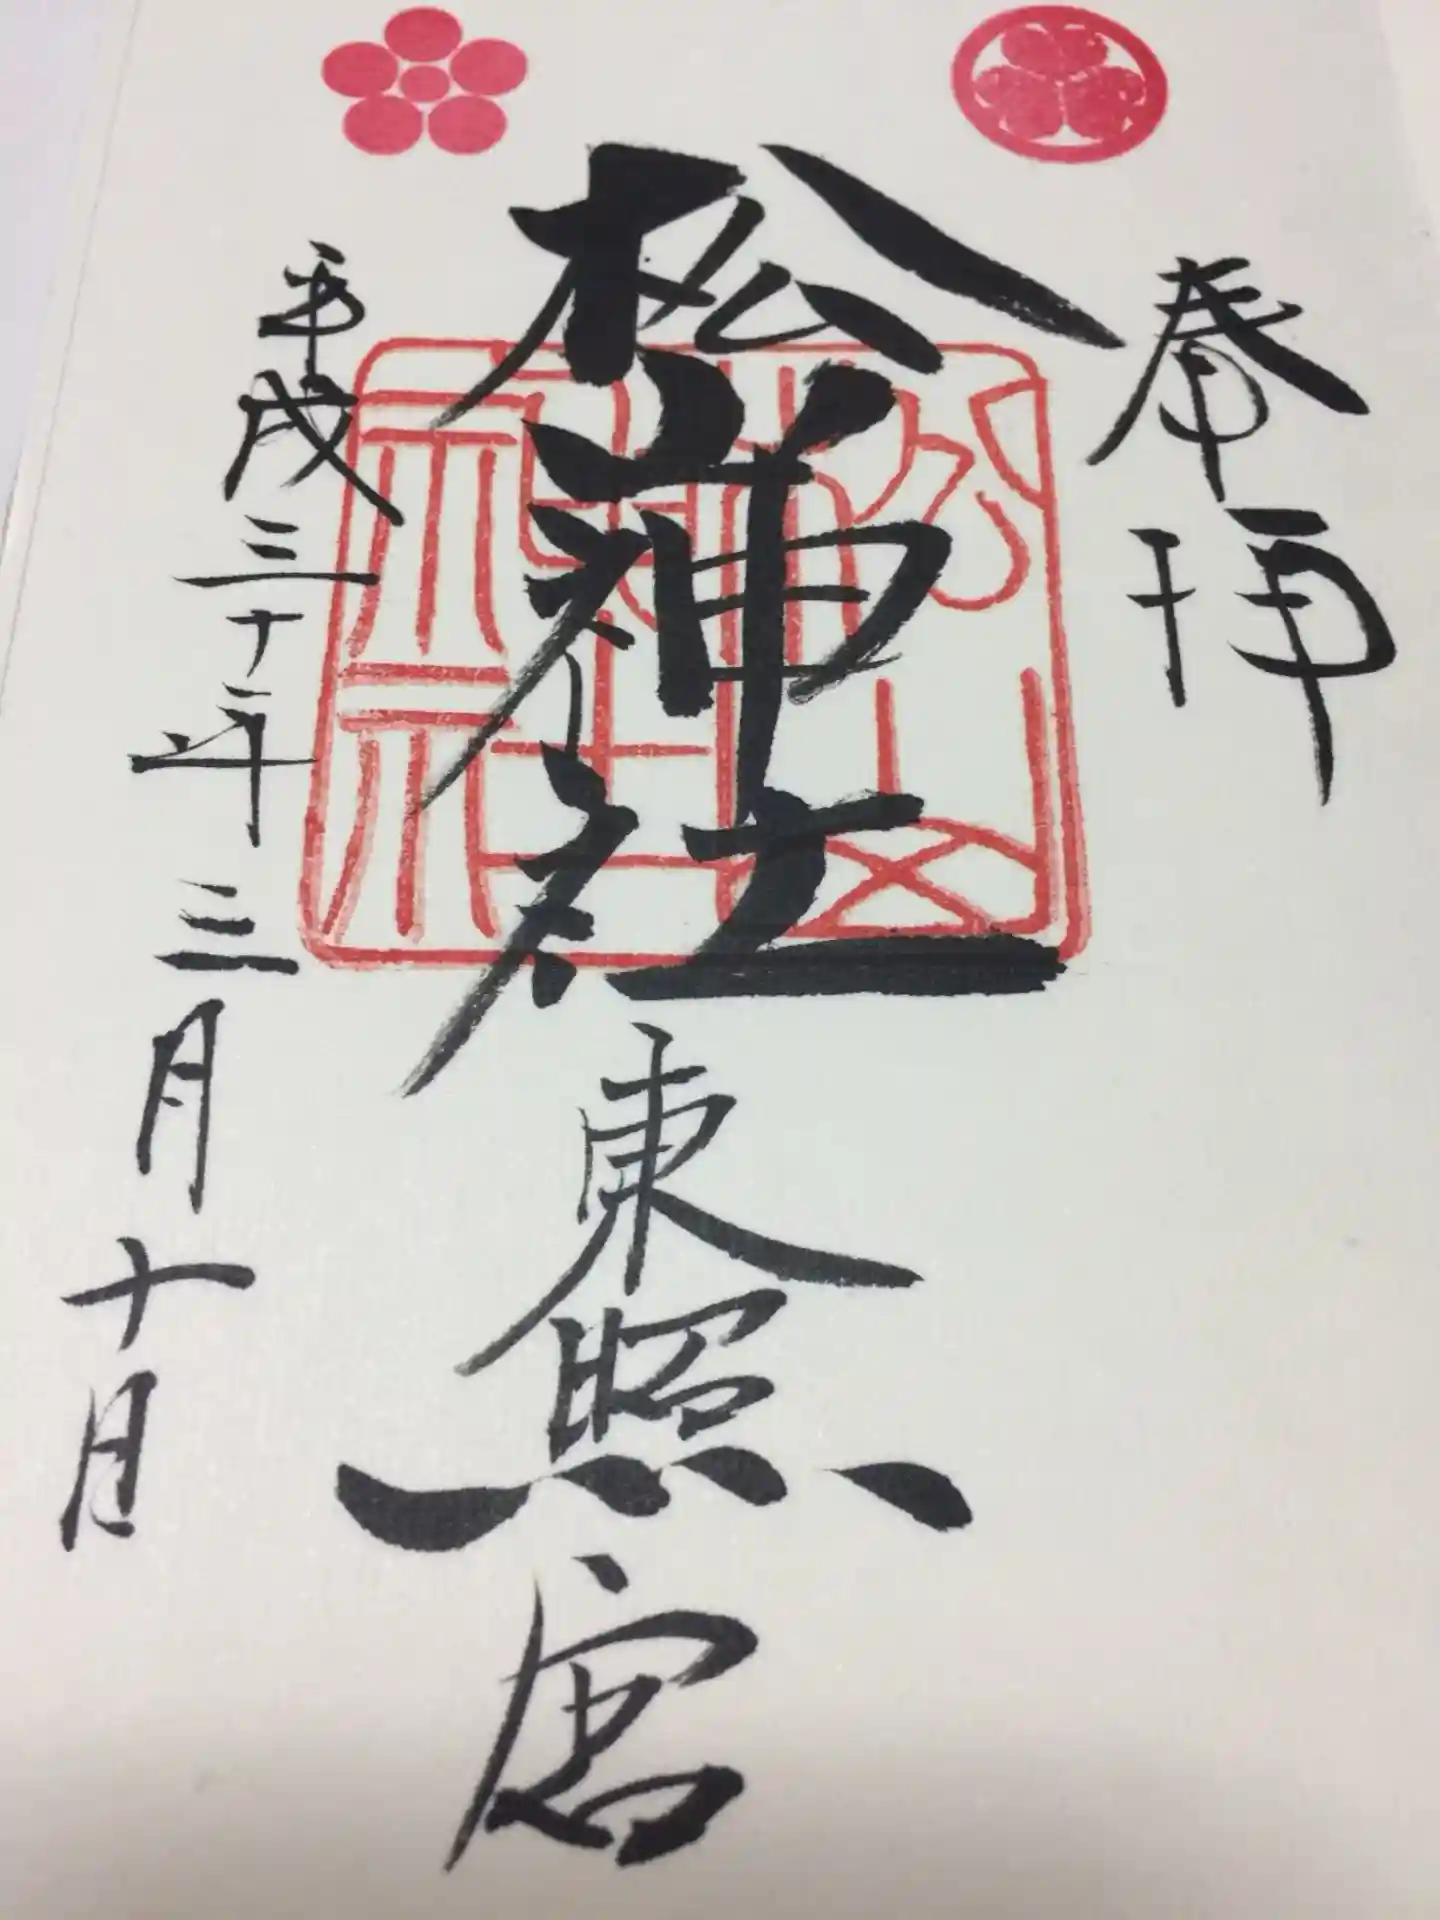 奉拝
松山神社 東照宮
平成三十年三月十日
松山神社